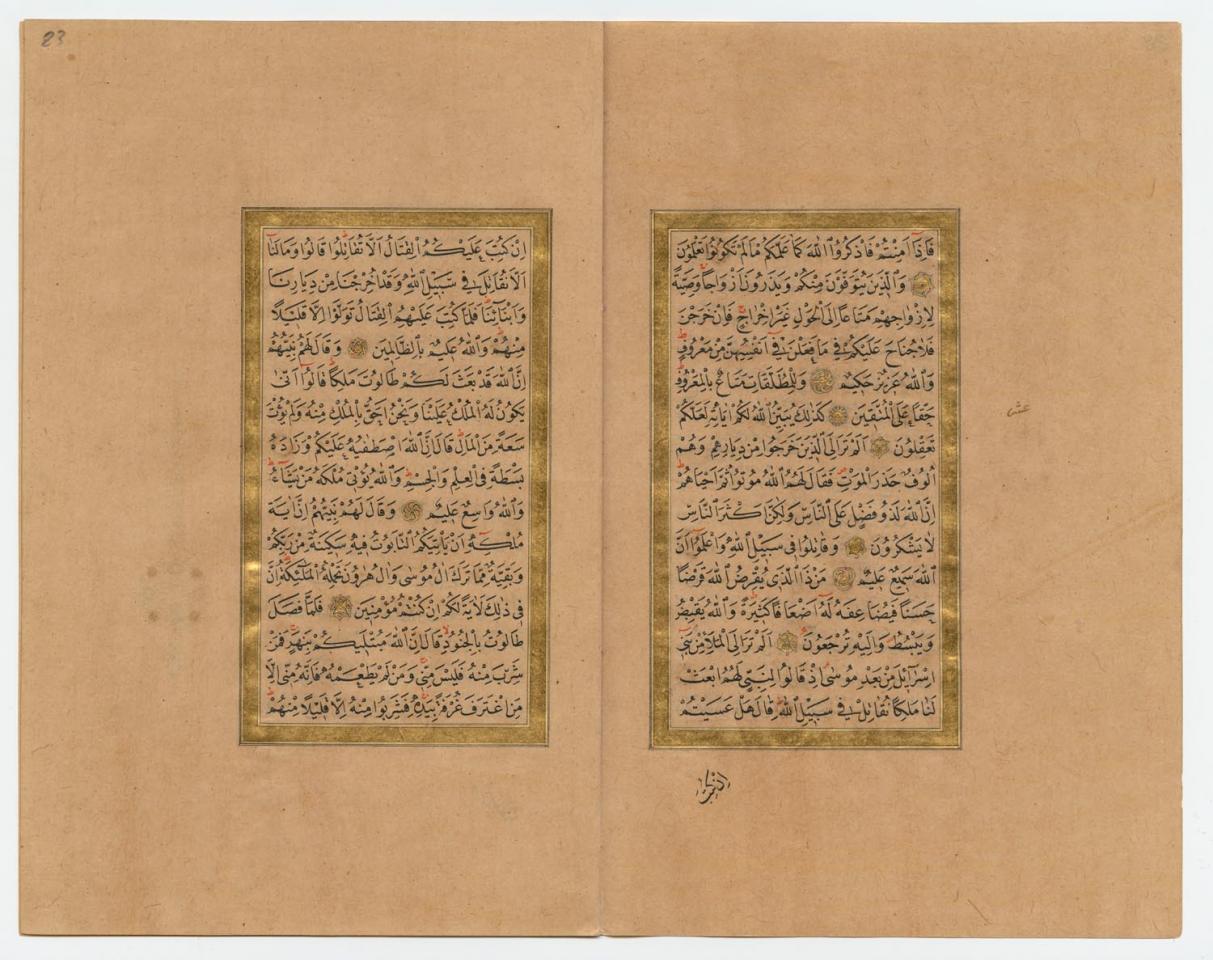 فَاِذَا اَمِنْتُمْ فَاذْكُرُوا اللّٰهَ كَمَا عَلَّمَكُمْ مَا لَمْ تَكُونُوا تَعْلَمُونَ
وَالَّذِينَ يُتَوَفَّوْنَ مِنْكُمْ وَيَذَرُونَ اَزْوَاجًا وَصِيَّةً
لِاَزْوَاجِهِمْ مَتَاعًا اِلَى الْحَوْلِ غَيْرَ اِخْرَاجٍ فَاِنْ خَرَجْنَ
فَلَا جُنَاحَ عَلَيْكُمْ فِي مَا فَعَلْنَ فِي اَنْفُسِهِنَّ مِنْ مَعْرُوفٍ
وَاللّٰهُ عَزِيزٌ حَكِيمٌ وَلِلْمُطَلَّقَاتِ مَتَاعٌ بِالْمَعْرُوفِ
حَقًّا عَلَى الْمُتَّقِينَ كَذٰلِكَ يُبَيِّنُ اللّٰهُ لَكُمْ اٰيَاتِهِ لَعَلَّكُمْ
تَعْقِلُونَ اَلَمْ تَرَ اِلَى الَّذِينَ خَرَجُوا مِنْ دِيَارِهِمْ وَهُمْ
اُلُوفٌ حَذَرَ الْمَوْتِ فَقَالَ لَهُمُ اللّٰهُ مُوتُوا ثُمَّ اَحْيَاهُمْ
اِنَّ اللّٰهَ لَذُو فَضْلٍ عَلَى النَّاسِ وَلٰكِنَّ اَكْثَرَ النَّاسِ
لَا يَشْكُرُونَ وَقَاتِلُوا فِي سَبِيلِ اللّٰهِ وَاعْلَمُوا اَنَّ
اللّٰهَ سَمِيعٌ عَلِيمٌ مَنْ ذَا الَّذِي يُقْرِضُ اللّٰهَ قَرْضًا
حَسَنًا فَيُضَاعِفَهُ لَهُ اَضْعَافًا كَثِيرَةً وَاللّٰهُ يَقْبِضُ
وَيَبْسُطُ وَاِلَيْهِ تُرْجَعُونَ اَلَمْ تَرَ اِلَى الْمَلَاِ مِنْ بَنِي
اِسْرَآئِلَ مِنْ بَعْدِ مُوسٰى اِذْ قَالُوا لِنَبِيٍّ لَهُمُ ابْعَثْ
لَنَا مَلِكًا نُقَاتِلْ فِي سَبِيلِ اللّٰهِ قَالَ هَلْ عَسَيْتُمْ
اِنْ كُتِبَ
عشر
23
اِنْ كُتِبَ عَلَيْكُمُ الْقِتَالُ اَلَّا تُقَاتِلُوا قَالُوا وَمَا لَنَا
اَلَّا نُقَاتِلَ فِي سَبِيلِ اللّٰهِ وَقَدْ اُخْرِجْنَا مِنْ دِيَارِنَا
وَاَبْنَائِنَا فَلَمَّا كُتِبَ عَلَيْهِمُ الْقِتَالُ تَوَلَّوْا اِلَّا قَلِيلًا
مِنْهُمْ وَاللّٰهُ عَلِيمٌ بِالظَّالِمِينَ وَقَالَ لَهُمْ نَبِيُّهُمْ
اِنَّ اللّٰهَ قَدْ بَعَثَ لَكُمْ طَالُوتَ مَلِكًا قَالُوا اَنّٰى
يَكُونُ لَهُ الْمُلْكُ عَلَيْنَا وَنَحْنُ اَحَقُّ بِالْمُلْكِ مِنْهُ وَلَمْ يُؤْتَ
سَعَةً مِنَ الْمَالِ قَالَ اِنَّ اللّٰهَ اصْطَفٰيهُ عَلَيْكُمْ وَزَادَهُ
بَسْطَةً فِي الْعِلْمِ وَالْجِسْمِ وَاللّٰهُ يُؤْتِي مُلْكَهُ مَنْ يَشَاءُ
وَاللّٰهُ وَاسِعٌ عَلِيمٌ وَقَالَ لَهُمْ نَبِيُّهُمْ اِنَّ اٰيَةَ
مُلْكِهِ اَنْ يَأْتِيَكُمُ التَّابُوتُ فِيهِ سَكِينَةٌ مِنْ رَبِّكُمْ
وَبَقِيَّةٌ مِمَّا تَرَكَ اٰلُ مُوسٰى وَاٰلُ هٰرُونَ تَحْمِلُهُ الْمَلٰئِكَةُ اِنَّ
فِي ذٰلِكَ لَاٰيَةً لَكُمْ اِنْ كُنْتُمْ مُؤْمِنِينَ فَلَمَّا فَصَلَ
طَالُوتُ بِالْجُنُودِ قَالَ اِنَّ اللّٰهَ مُبْتَلِيكُمْ بِنَهَرٍ فَمَنْ
شَرِبَ مِنْهُ فَلَيْسَ مِنِّي وَمَنْ لَمْ يَطْعَمْهُ فَاِنَّهُ مِنِّي اِلَّا
مَنِ اغْتَرَفَ غُرْفَةً بِيَدِهِ فَشَرِبُوا مِنْهُ اِلَّا قَلِيلًا مِنْهُمْ